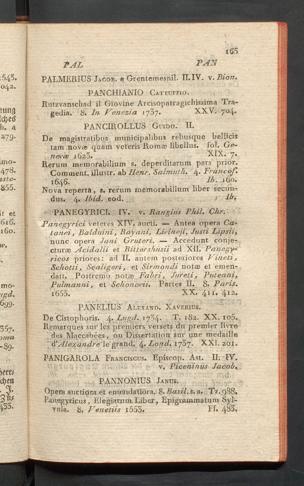 165
PAL PAN
PALMERIUS Jacob. a Grentemesnil. II. IV. v. Bion.
PANCHIANO Catuffio.
Rutzvanschad il Giovine Arcisopatragichissima Tra-
gedia. 8. In Venezia 1737. XXV. 704.
PANCIROLLUS Guido. II.
De magistratibus municipalibus rebusque bellicis
tam novæ quam veteris Romæ libellus. fol. Ge-
novæ 1623. XIX. 7.
Rerum memorabilium s. deperditarum pars prior.
Comment. illustr. ab Henr. Salmuth. 4. Francof.
1646. Ib. 160.
Nova reperta, s. rerum memorabilium liber secun-
dus. 4. Ibid. eod. Ib.
PANEGYRICI. IV. v. Rangius Phil. Chr.
Panegyrici veteres XIV. aucti. — Antea opera Ca-
tanei, Balduini, Livineji, Justi Lipsii,
nunc opera Jani Gruteri. — Accedunt conjec-
turæ Acidalii et Rittershusii ad XII. Panegy-
ricos priores: ad II. autem posteriores Vineti,
Schotti, Scaligeri, et Sirmondi notæ et emen-
dati. Postremo notæ Fabri, Jureti, Puteani,
Pulmanni, et Schonovii. Partes II. 8. Paris.
1655. XX. 411. 412.
PANELIUS Alexand. Xaverius.
De Cistophoris. 4. Lugd. 1734. T. 182. XX. 105.
Remarques sur les premiers versets du premier livre
des Maccabées, ou Dissertation sur une medaille
d'Alexandre le grand. 4. Lond. 1737. XXI. 201.
PANIGAROLA Franciscus. Episcop. Ast. II. IV.
v. Piceninus Jacob.
PANNONIUS Janus.
Opera auctiora et emendatiora. 8. Basil. s. a. Tt. 988.
Panegyricus, Elegiarum Liber, Epigrammatum Syl-
vula. 8. Venetiis 1553. Ff. 483.